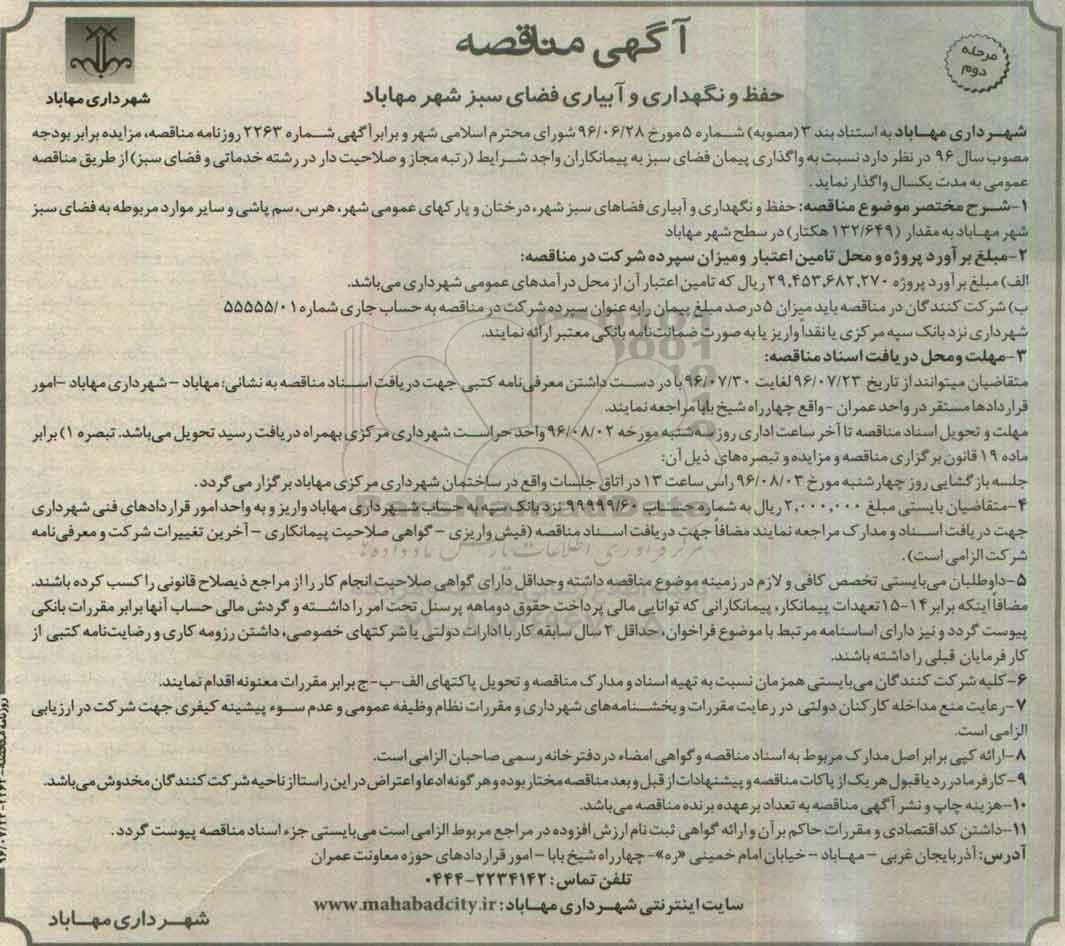 آگهی مناقصه
مرحله
دوم
شهرداری مهاباد
حفظ و نگهداری و آبیاری فضای سبز شهر مهاباد
شهرداری مهاباد به استناد بند ۳ (مصوبه) شماره ۵ مورخ ۹۶/۰۶/۲۸ شورای محترم اسلامی شهر و برابر آگهی شماره ۲۲۶۳ روزنامه مناقصه، مزایده برابر بودجه
مصوب سال ۹۶ در نظر دارد نسبت به واگذاری پیمان فضای سبز به پیمانکاران واجد شرایط (رتبه مجاز و صلاحیت دار در رشته خدماتی و فضای سبز) از طریق مناقصه
عمومی به مدت یکسال واگذار نماید.
۱-شرح مختصر موضوع مناقصه: حفظ و نگهداری و آبیاری فضاهای سبز شهر، درختان و پارکهای عمومی شهر، هرس، سم پاشی و سایر موارد مربوطه به فضای سبز
شهر مهاباد به مقدار (۱۳۲/۶۴۹ هکتار) در سطح شهر مهاباد
۲-مبلغ برآورد پروژه و محل تامین اعتبار ومیزان سپرده شرکت در مناقصه:
الف) مبلغ برآورد پروژه ۲۹,۴۵۳,۶۸۲,۲۷۰ ریال که تامین اعتبار آن از محل درآمدهای عمومی شهرداری می‌باشد.
ب) شرکت کنندگان در مناقصه باید میزان ۵ درصد مبلغ پیمان را به عنوان سپرده شرکت در مناقصه به حساب جاری شماره ۵۵۵۵۵/۰۱
شهرداری نزد بانک سپه مرکزی یا نقداً واریز یا به صورت ضمانت‌نامه بانکی معتبر ارائه نمایند.
۳-مهلت ومحل دریافت اسناد مناقصه:
متقاضیان میتوانند از تاریخ ۹۶/۰۷/۲۳ لغایت ۹۶/۰۷/۳۰ با در دست داشتن معرفی‌نامه کتبی جهت دریافت اسناد مناقصه به نشانی: مهاباد – شهرداری مهاباد –امور
قراردادها مستقر در واحد عمران –واقع چهارراه شیخ بابا مراجعه نمایند.
مهلت و تحویل اسناد مناقصه تا آخر ساعت اداری روز سه‌شنبه مورخه ۹۶/۰۸/۰۲ واحد حراست شهرداری مرکزی بهمراه دریافت رسید تحویل می‌باشد. تبصره ۱) برابر
ماده ۱۹ قانون برگزاری مناقصه و مزایده و تبصره‌های ذیل آن:
جلسه بازگشایی روز چهارشنبه مورخ ۹۶/۰۸/۰۳ راس ساعت ۱۳ در اتاق جلسات واقع در ساختمان شهرداری مرکزی مهاباد برگزار می‌گردد.
۴-متقاضیان بایستی مبلغ ۲,۰۰۰,۰۰۰ ریال به شماره حساب ۹۹۹۹۹/۶۰ نزد بانک سپه به حساب شهرداری مهاباد واریز و به واحد امور قراردادهای فنی شهرداری
جهت دریافت اسناد و مدارک مراجعه نمایند مضافاً جهت دریافت اسناد مناقصه (فیش واریزی – گواهی صلاحیت پیمانکاری – آخرین تغییرات شرکت و معرفی‌نامه
شرکت الزامی است).
۵-داوطلبان می‌بایستی تخصص کافی و لازم در زمینه موضوع مناقصه داشته وحداقل دارای گواهی صلاحیت انجام کار را از مراجع ذیصلاح قانونی را کسب کرده باشند.
مضافاً اینکه برابر ۱۴-۱۵ تعهدات پیمانکار، پیمانکارانی که توانایی مالی پرداخت حقوق دوماهه پرسنل تحت امر را داشته و گردش مالی حساب آنها برابر مقررات بانکی
پیوست گردد و نیز دارای اساسنامه مرتبط با موضوع فراخوان، حداقل ۲ سال سابقه کار با ادارات دولتی یا شرکتهای خصوصی، داشتن رزومه کاری و رضایت‌نامه کتبی از
کارفرمایان قبلی را داشته باشند.
۶-کلیه شرکت کنندگان می‌بایستی همزمان نسبت به تهیه اسناد و مدارک مناقصه و تحویل پاکتهای الف-ب-ج برابر مقررات معنونه اقدام نمایند.
۷-رعایت منع مداخله کارکنان دولتی در رعایت مقررات و بخشنامه‌های شهرداری و مقررات نظام وظیفه عمومی و عدم سوء پیشینه کیفری جهت شرکت در ارزیابی
الزامی است.
۸-ارائه کپی برابر اصل مدارک مربوط به اسناد مناقصه و گواهی امضاء در دفترخانه رسمی صاحبان الزامی است.
۹-کارفرما در رد یا قبول هر یک از پاکات مناقصه و پیشنهادات از قبل و بعد مناقصه مختار بوده و هر گونه ادعا و اعتراض در این راستا از ناحیه شرکت کنندگان مخدوش می‌باشد.
۱۰-هزینه چاپ و نشر آگهی مناقصه به تعداد بر عهده برنده مناقصه می‌باشد.
۱۱-داشتن کد اقتصادی و مقررات حاکم بر آن و ارائه گواهی ثبت نام ارزش افزوده در مراجع مربوط الزامی است می‌بایستی جزء اسناد مناقصه پیوست گردد.
آدرس: آذربایجان غربی – مهاباد – خیابان امام خمینی «ره»-چهارراه شیخ بابا – امور قراردادهای حوزه معاونت عمران
تلفن تماس: ۲۲۳۴۱۴۲-۰۴۴۴
سایت اینترنتی شهرداری مهاباد: www.mahabadcity.ir
شهرداری مهاباد